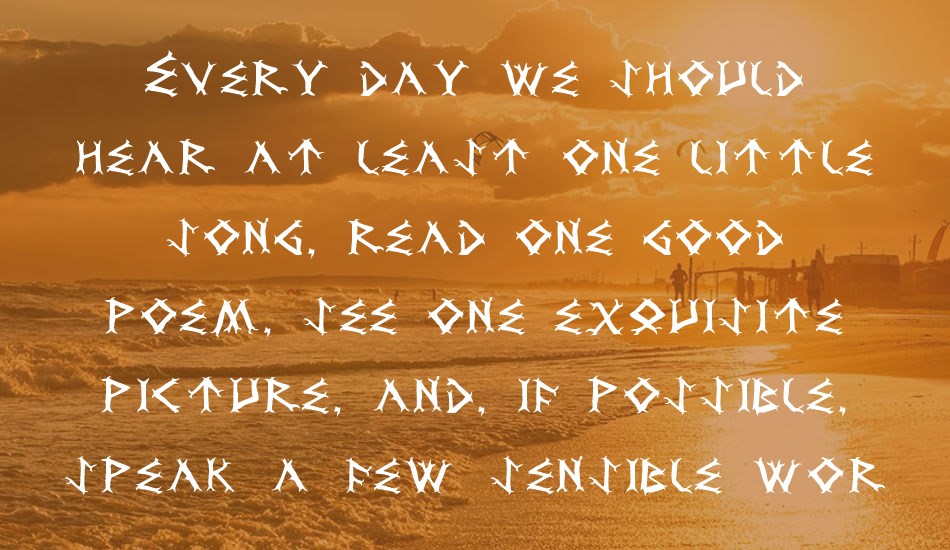 Every day we should
hear at least one little
song, read one good
poem, see one exquisite
picture, and, if possible,
speak a few sensible wor